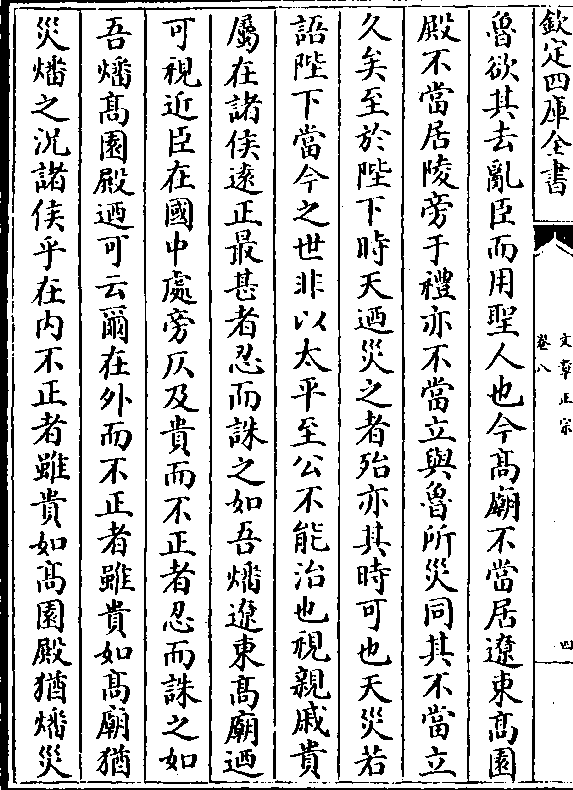 欽定四庫全書
文章正宗
卷八
四
魯欲其去亂臣而用聖人也今髙廟不當居遼東髙園
殿不當居陵旁于禮亦不當立與魯所災同其不當立
久矣至於陛下時天迺災之者殆亦其時可也天災若
語陛下當今之世非以太平至公不能治也視親戚貴
屬在諸侯逺正最甚者忍而誅之如吾燔遼東髙廟迺
可視近臣在國中處旁仄及貴而不正者忍而誅之如
吾燔髙園殿迺可云爾在外而不正者雖貴如髙廟猶
災燔之況諸侯乎在内不正者雖貴如髙園殿猶燔災